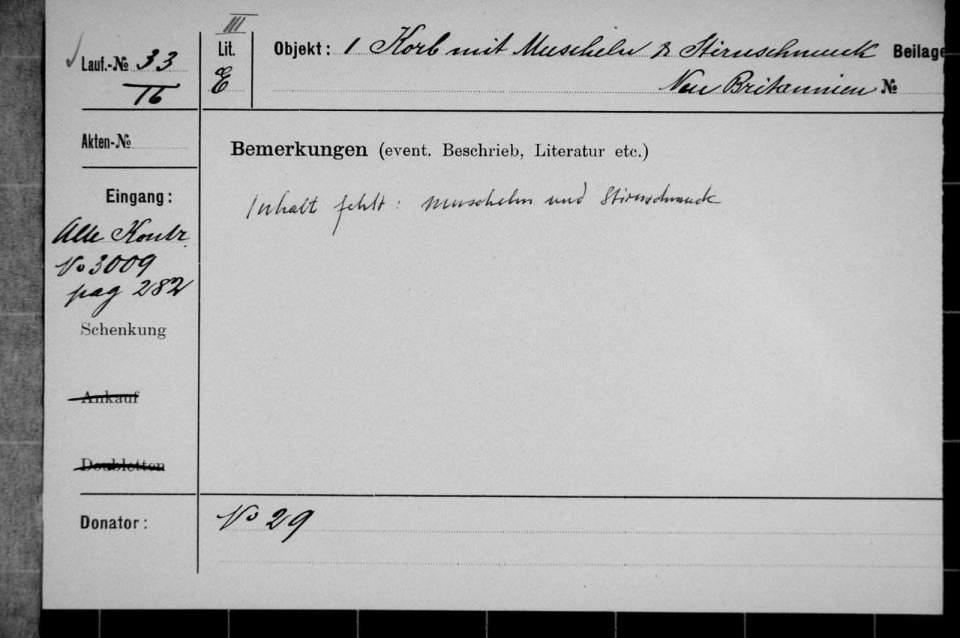 III
Lauf.-№ 33
16
Lit.
E
Objekt: 1 Korb mit Muscheln & Stirnschmuck Beilage
Neu Britannien №
Akten-№
Bemerkungen (event. Beschrieb, Literatur etc.)
Eingang:
Inhalt fehlt: Muscheln und Stirnschmuck
Alte Kontr.
No 3009
pag 282
Schenkung
Ankauf
Doubletten
Donator:
No 29